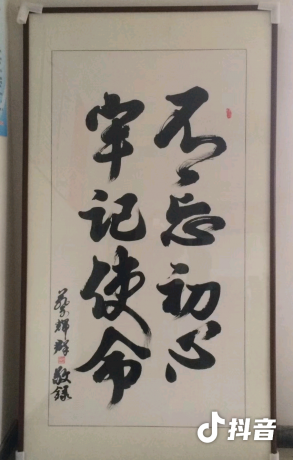 不忘初心
牢记使命
敬录
抖音